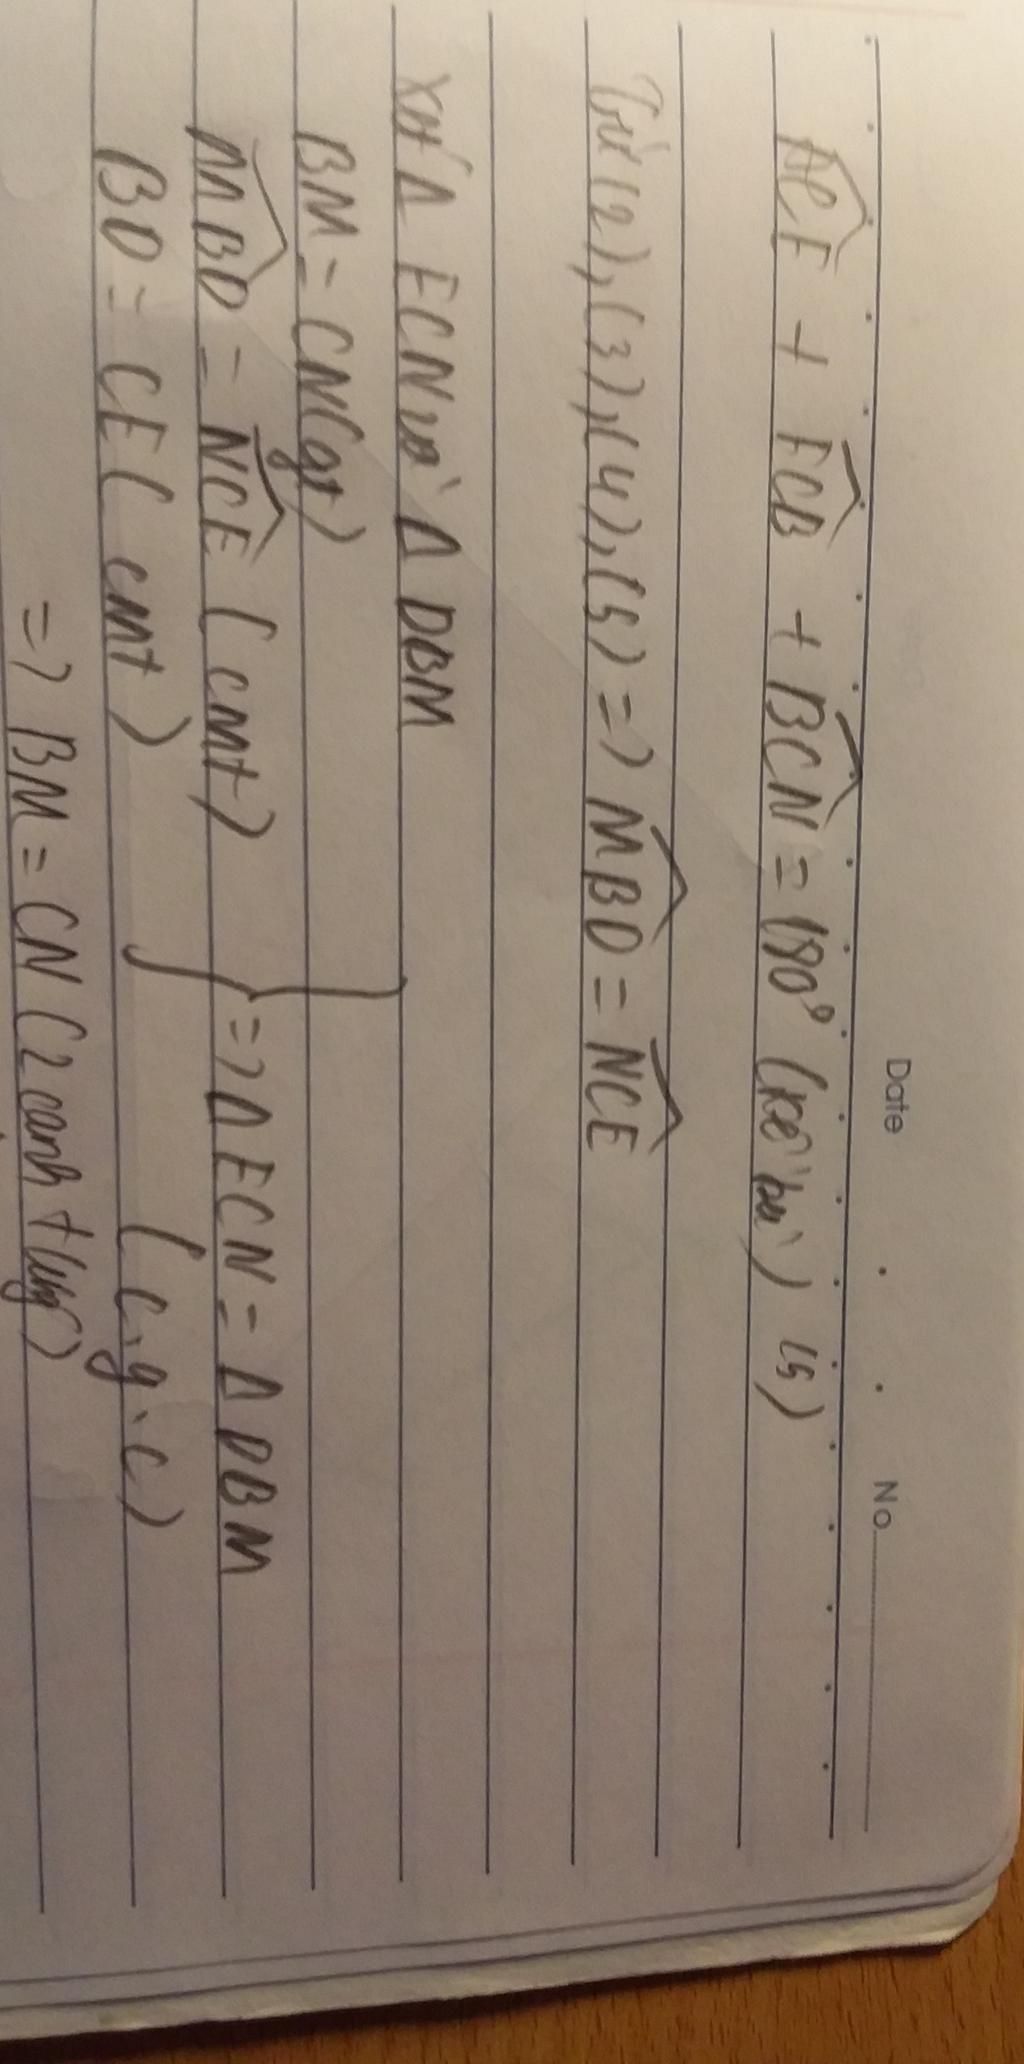 Date No.
ACE + ECB + BCN = 180° (kề bù) (5)
Từ (2), (3), (4), (5) => MBD = NCE
Xét Δ ECN và Δ DBM
BM = CN (gt)
MBD = NCE (cmt) => Δ ECN = Δ DBM
BD = CE (cmt) (c.g.c)
=> BM = CN (2 cạnh tứng)